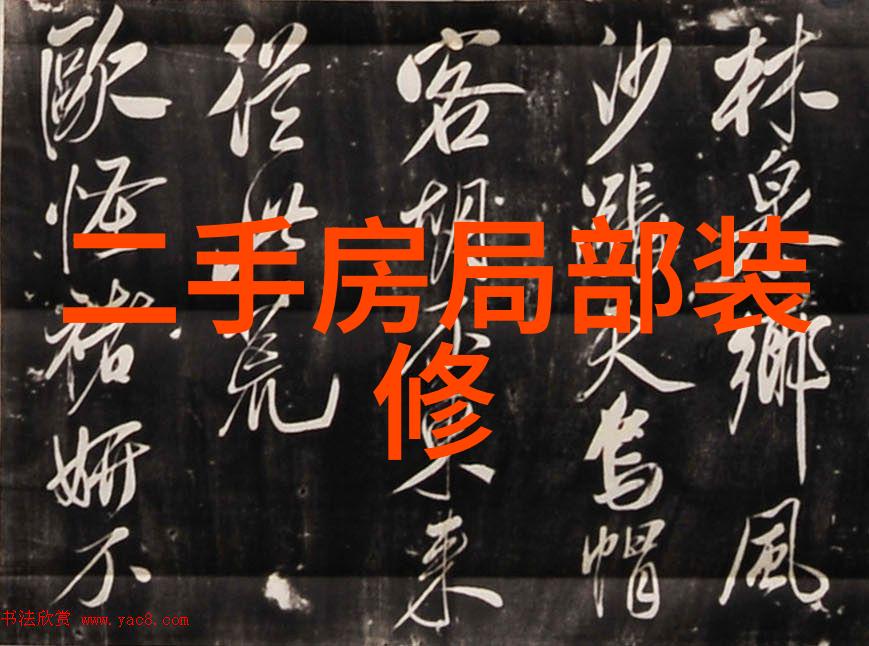 二手房局部装
修
林泉鄉風
沙漲天烏帽
客胡不東來
從洪荒
歐怪褚妍不
书法欣赏 www.yac8.com